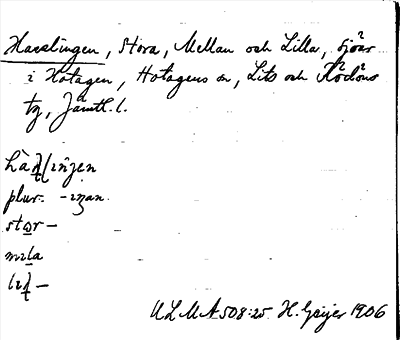 Havslingen, Stora, Mellan och Lilla, sjöar
i Hotagen, Hotagens sn, Lits och Rödöns
tg, Jämtl. l.
plur. -ıŋan.
stør –
mıla
ULMA 508:25. H. Geijer 1906